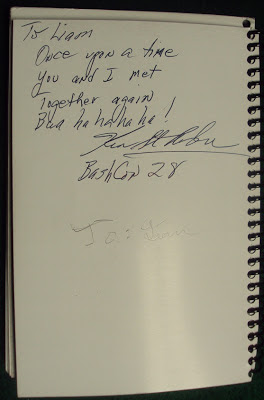 To Liam
Once upon a time
You and I met
Together again
Bwa ha ha ha ha!
BashCon 28